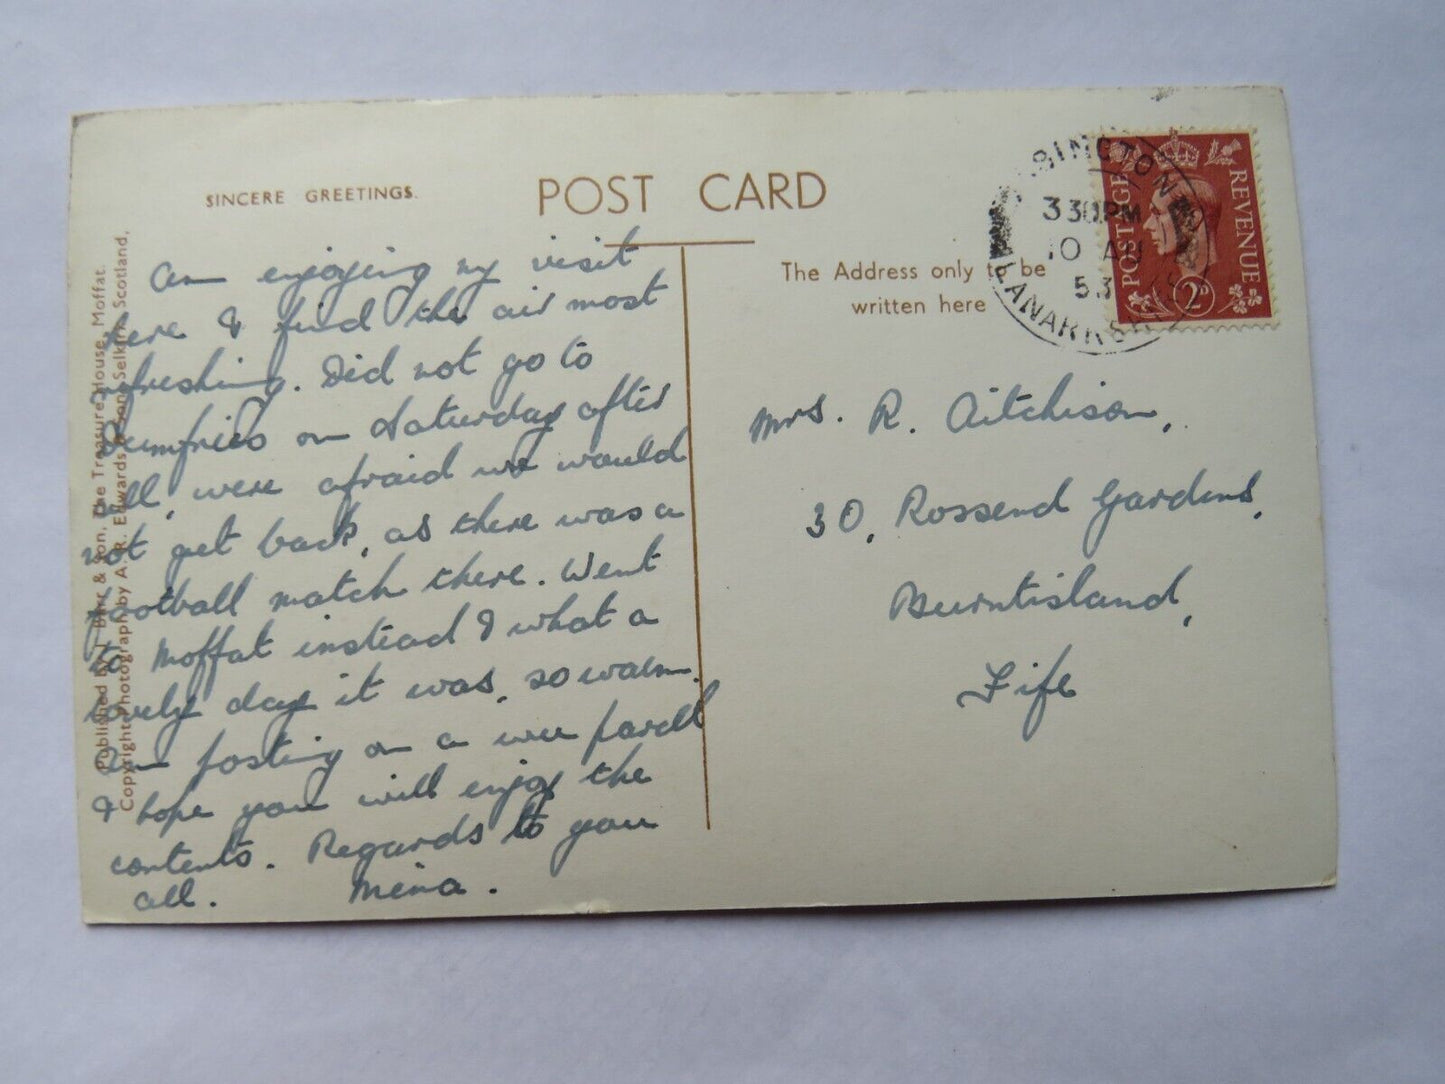 SINCERE GREETINGS.
POST CARD
Am enjoying my visit
here & find the air most
refreshing. Did not go to
Dumfries on Saturday after
all, were afraid we would
not get back, as there was a
football match there. Went
to Moffat instead & what a
lovely day it was, so warm.
Am posting on a wee parcel
& hope you will enjoy the
contents. Regards to you
all. Mina.
Published by J. & Son, The Treasure House, Moffat.
Copyright Photograph by A. R. Edwards & Son, Selkirk, Scotland.
The Address only to be
written here
BINGTON
3 30 PM
10 AU
53
LANARKSH
POSTAGE
REVENUE
2D
Mrs. R. Aitchison,
30, Rossend Gardens,
Burntisland,
Fife